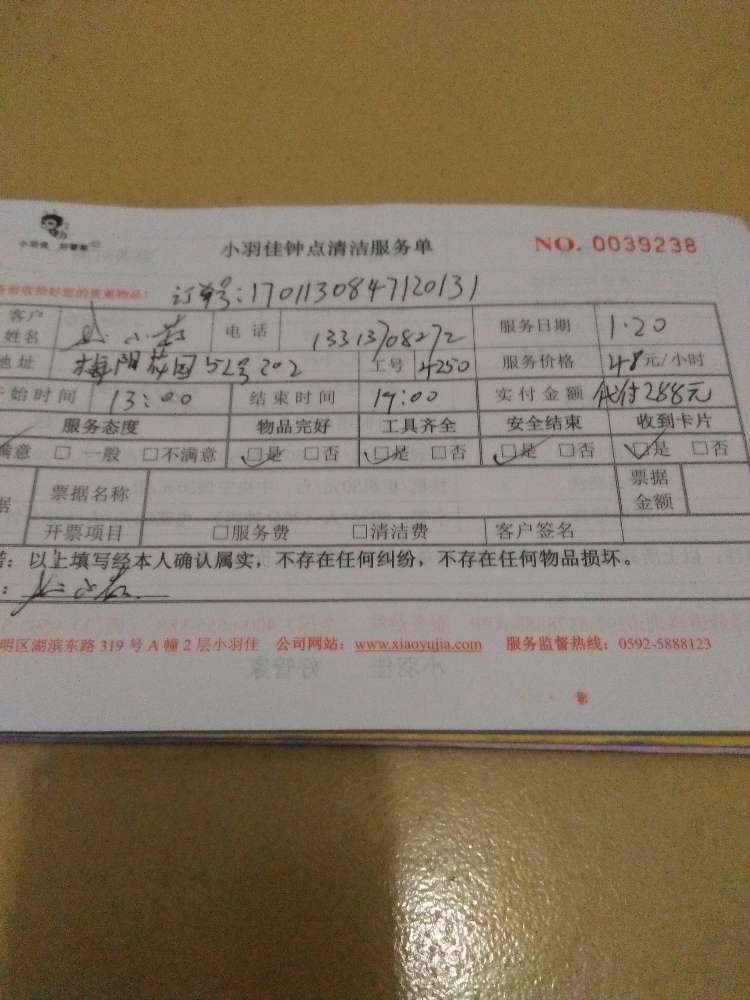 小羽佳 好管家
小羽佳钟点清洁服务单 NO. 0039238
验收拾好您的贵重物品! 订单号:1701130847120131
客户姓名 小 电话 13313708272 服务日期 1·20
地址 梅阳花园52号202 工号 4250 服务价格 48元/小时
开始时间 13:00 结束时间 19:00 实付金额 代付288元
服务态度 物品完好 工具齐全 安全结束 收到卡片
满意 □一般 □不满意 □是 □否 □是 □否 □是 □否 □是 □否
据 票据名称 票据金额
开票项目 □服务费 □清洁费 客户签名
以上填写经本人确认属实,不存在任何纠纷,不存在任何物品损坏。
明区湖滨东路 319 号 A 幢 2 层小羽佳 公司网站:www.xiaoyujia.com 服务监督热线:0592-5888123